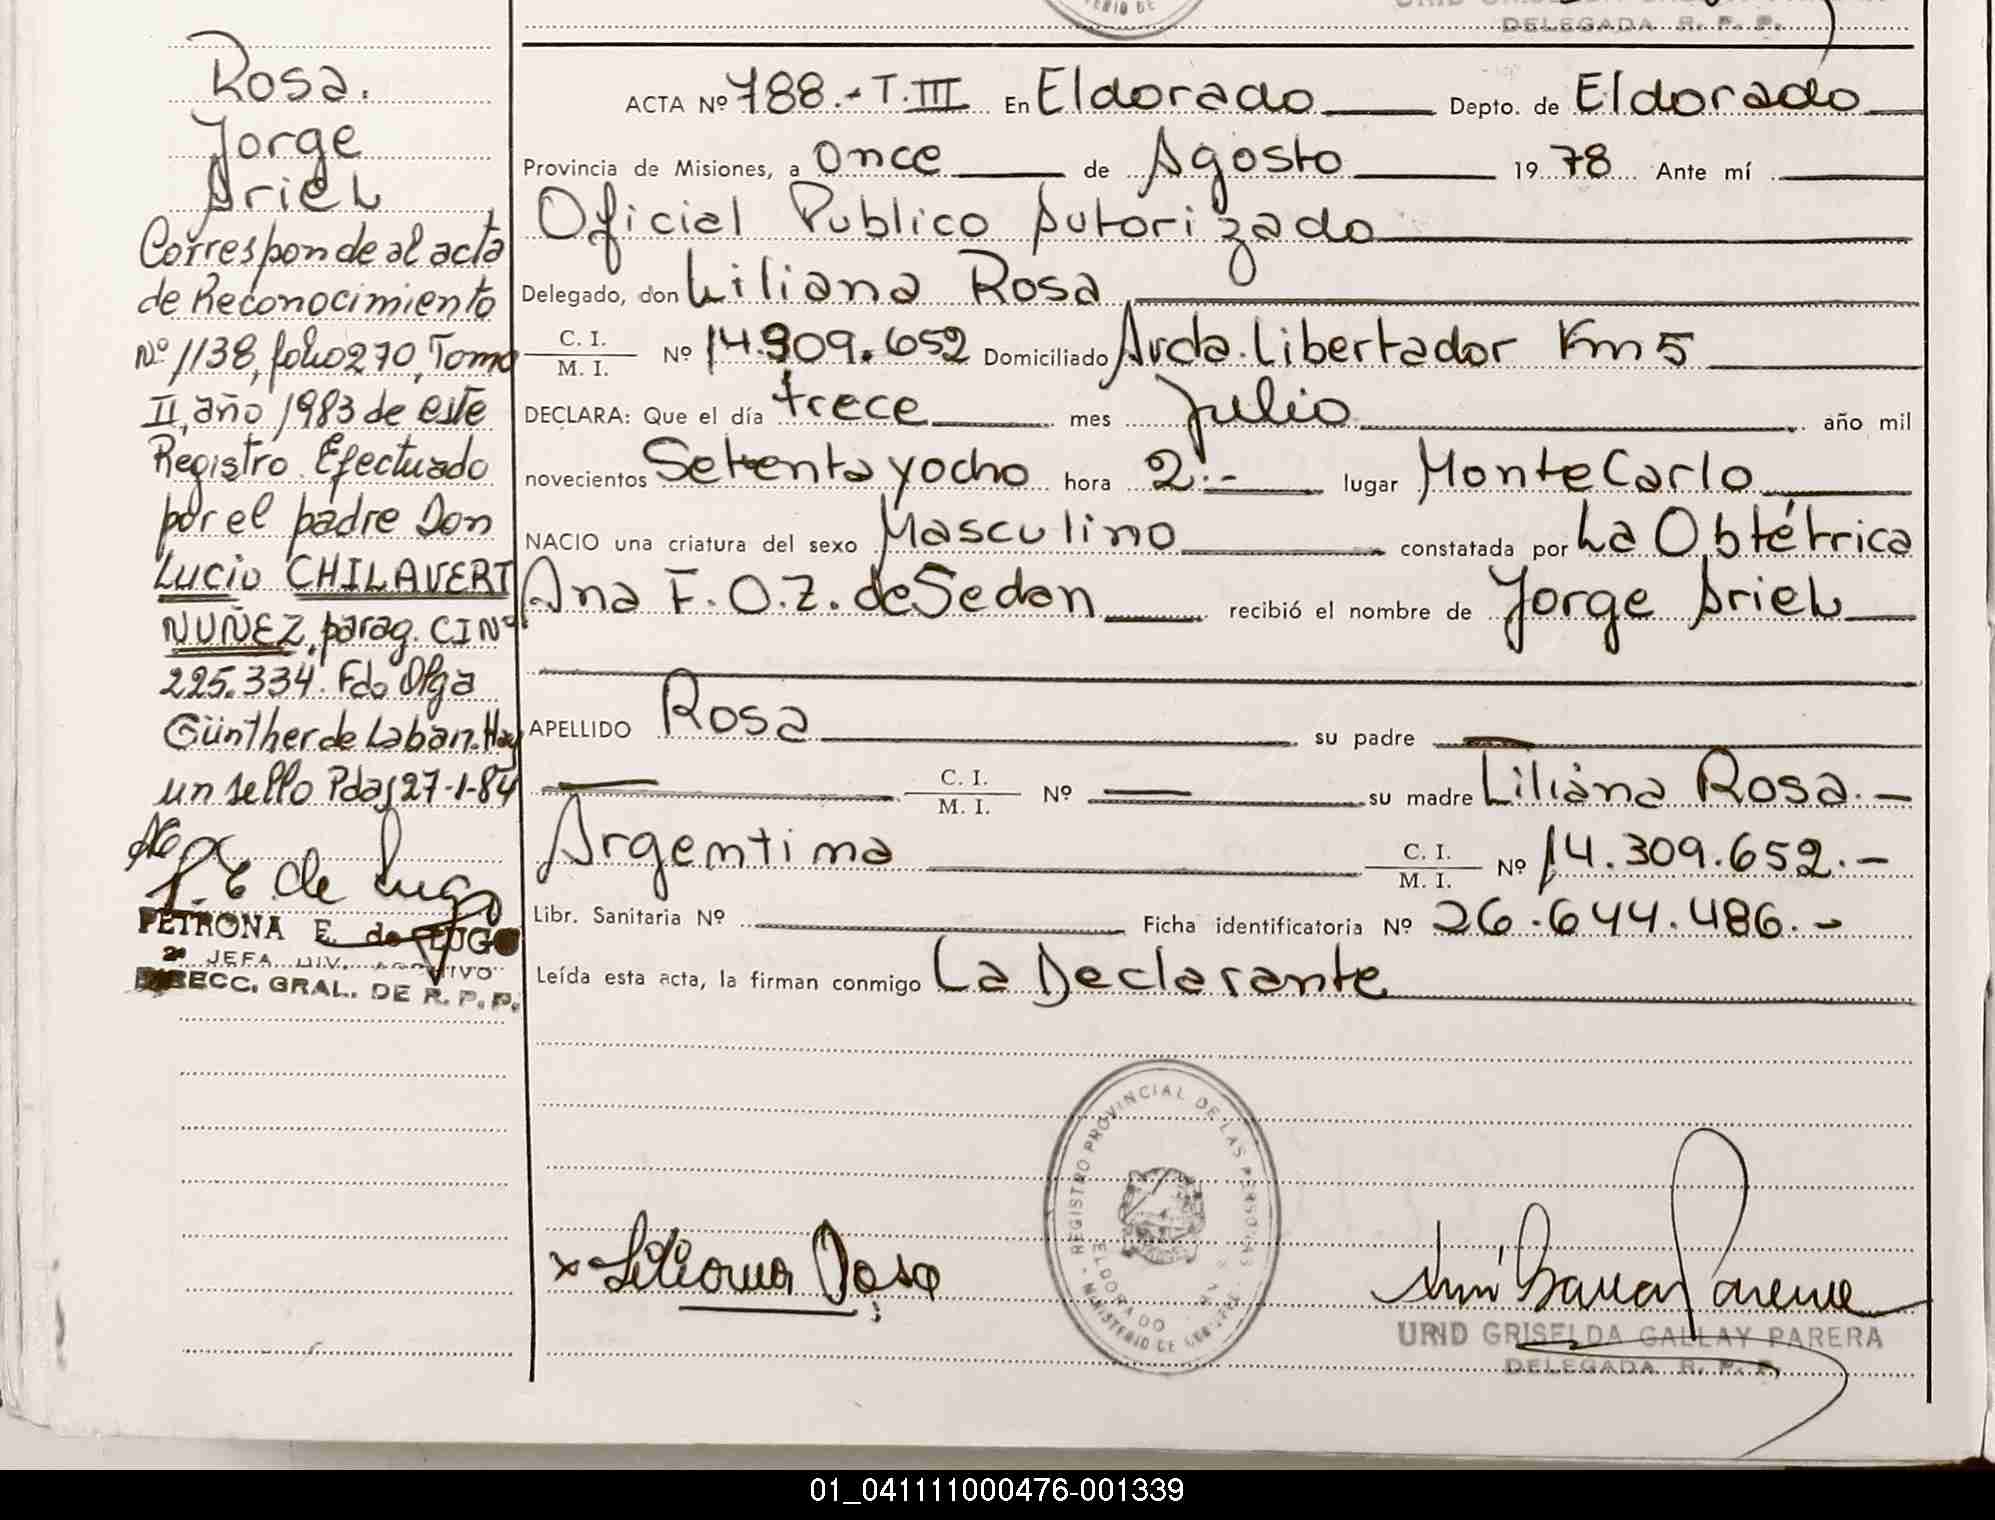 DELEGADA R. P. P.
Rosa.
Jorge
Ariel
Corresponde al acta
de Reconocimiento
Nº 1138, folio 270, Tomo
II, año 1983 de este
Registro. Efectuado
por el padre Don
Lucio CHILAVERT
NUÑEZ, parag. CI Nº
225.334. Fdo Olga
Günther de Laban. Hay
un sello Pdas 27-1-84
P. E de Lugo
PETRONA E. de LUGO
2ª JEFA DIV. ARCHIVO
DIRECC. GRAL. DE R. P. P.
ACTA Nº 788.- T. III En Eldorado Depto. de Eldorado
Provincia de Misiones, a Once de Agosto 19 78 Ante mí
Oficial Publico Autorizado
Delegado, don Liliana Rosa
C. I. / M. I. Nº 14.309.652 Domiciliado Avda. Libertador Km 5
DECLARA: Que el día trece mes Julio año mil
novecientos Setenta y ocho hora 2.- lugar Monte Carlo
NACIO una criatura del sexo Masculino constatada por La Obtétrica
Ana F. O. Z. de Sedan recibió el nombre de Jorge Ariel
APELLIDO Rosa su padre
C. I. / M. I. Nº su madre Liliana Rosa.-
Argentina C. I. / M. I. Nº 14.309.652.-
Libr. Sanitaria Nº Ficha identificatoria Nº 26.644.486.-
Leída esta acta, la firman conmigo La Declarante
REGISTRO PROVINCIAL DE LAS PERSONAS
ELDORADO
MINISTERIO DE GOBIERNO
x Liliana Rosa
URID GRISELDA GALLAY PARERA
DELEGADA R. P. P.
01_041111000476-001339